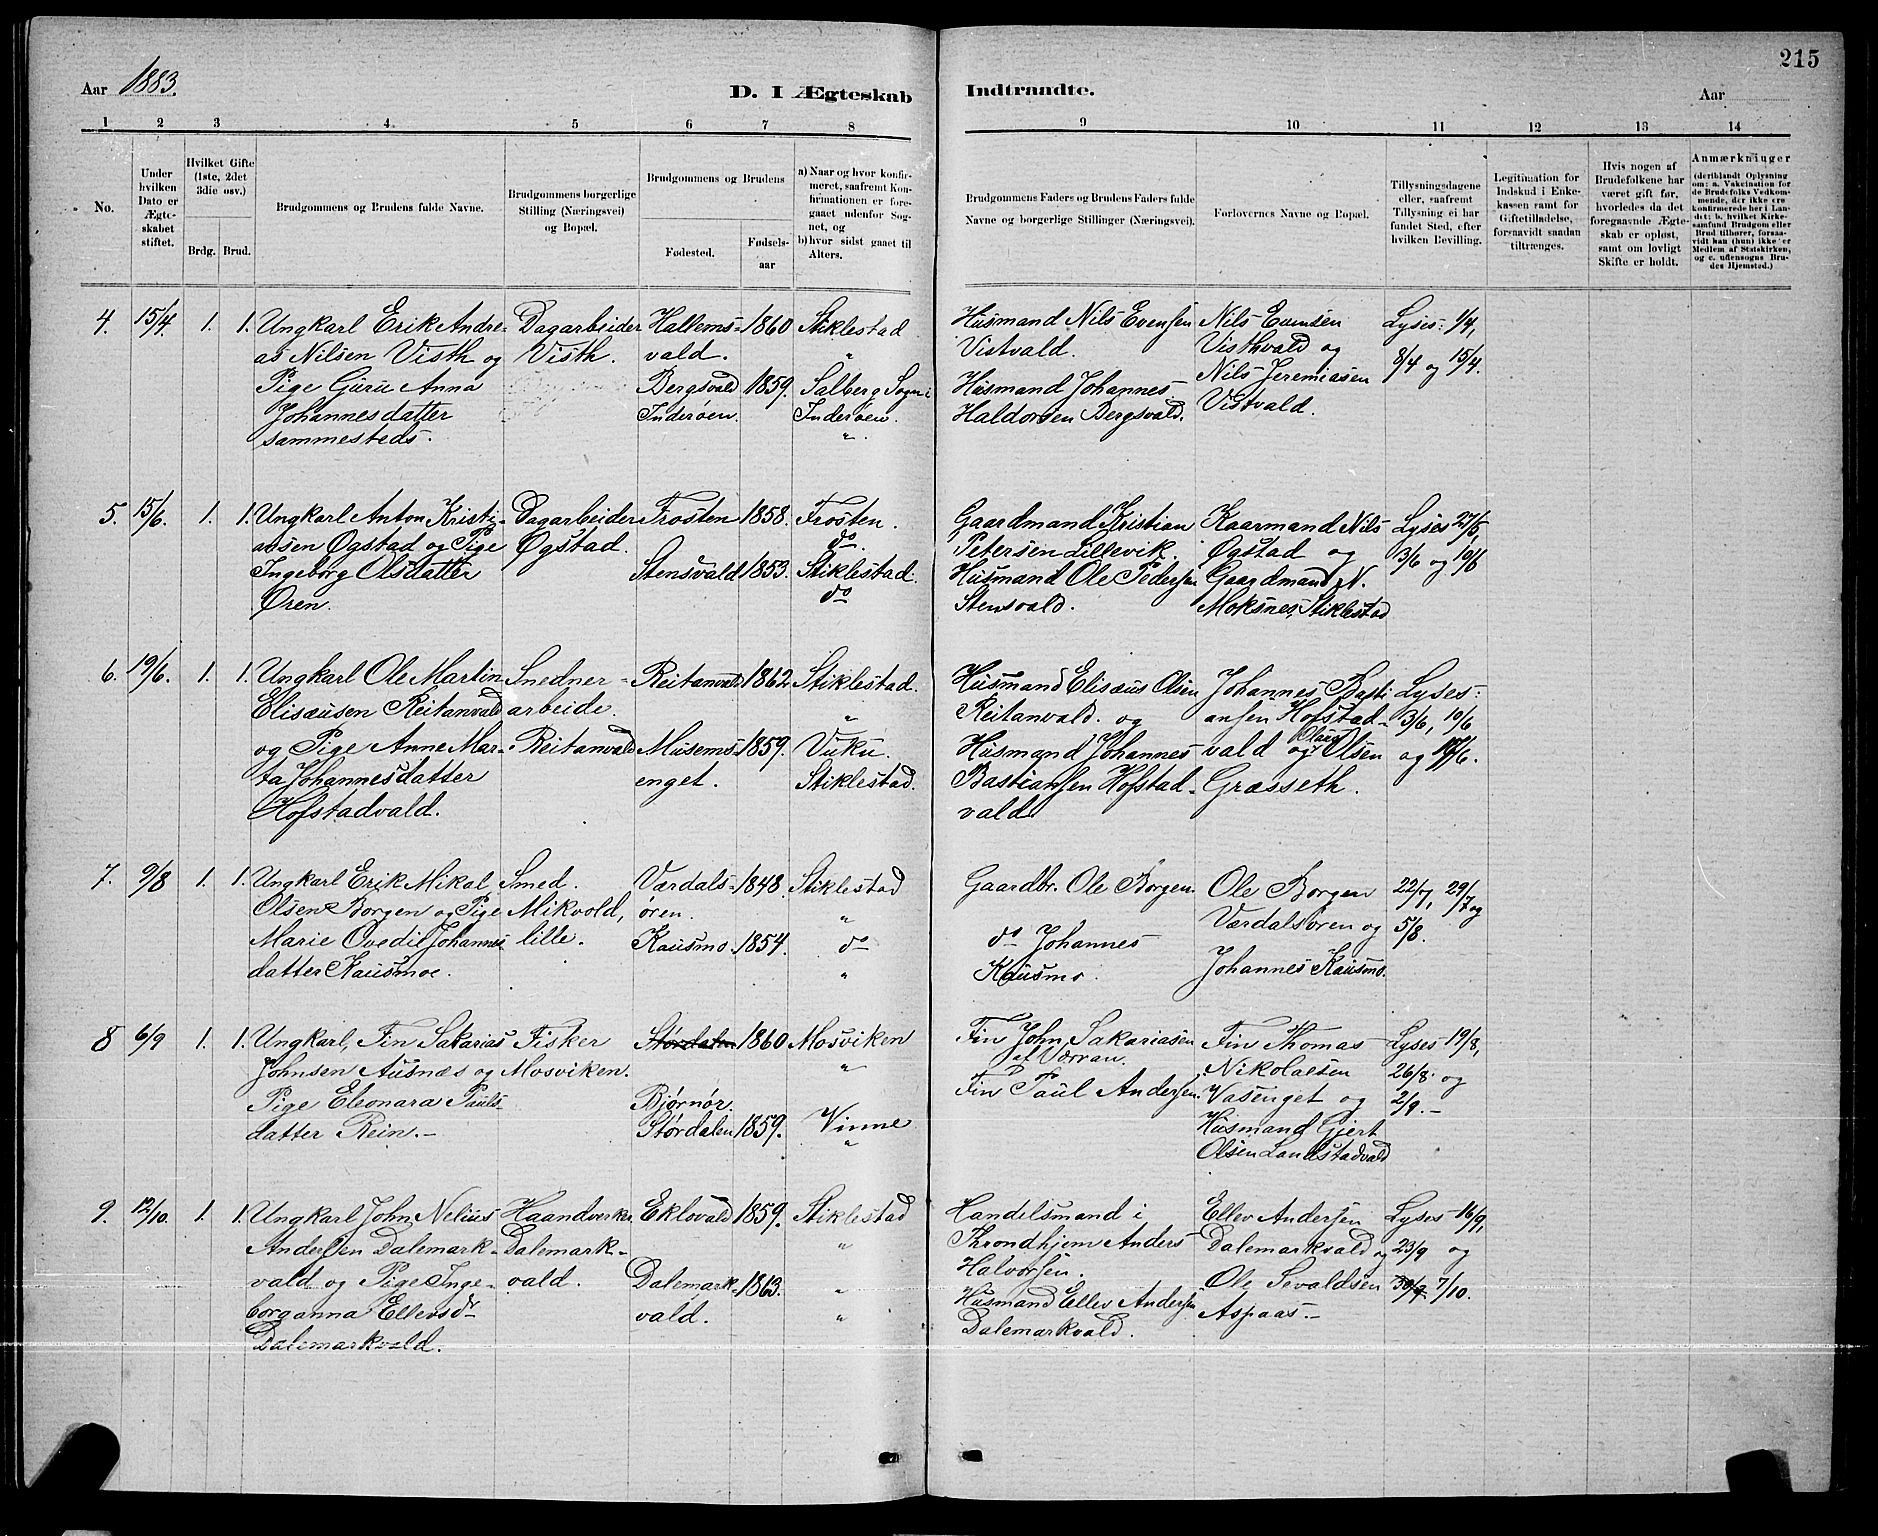 215
Aar 1883.
D. I Ægteskab Indtraadte.
Aar
1 2 3 4 5 6 7 8 9 10 11 12 13 14
No.
Under hvilken Dato er Ægteskabet stiftet.
Hvilket Gifte (1ste, 2det 3die osv.)
Brdg. Brud.
Brudgommens og Brudens fulde Navne.
Brudgommens borgerlige Stilling (Næringsvei) og Bopæl.
Brudgommens og Brudens
Fødested.
Fødsels-aar
a) Naar og hvor konfirmeret, saafremt Konfirmationen er foregaaet udenfor Sognet, og
b) hvor sidst gaaet til Alters.
Brudgommens Faders og Brudens Faders fulde Navne og borgerlige Stillinger (Næringsvei).
Forlovernes Navne og Bopæl.
Tillysningsdagene eller, saafremt Tillysning ei har fundet Sted, efter hvilken Bevilling.
Legitimation for Indskud i Enkekassen samt for Giftetilladelse, forsaavidt saadan tiltrænges.
Hvis nogen af Brudefolkene har været gift før, hvorledes da det foregaaende Ægteskab er opløst, samt om lovligt Skifte er holdt.
Anmærkninger (deriblandt Oplysning om: a. Vakcination for de Brudefolks Vedkommende, der ikke ere konfirmerede her i Landet; b. hvilket Kirkesamfund Brudgom eller Brud tilhører, forsaavidt han (hun) ikke er Medlem af Statskirken, og c. udensogns Brudes Hjemsted.)
4. 15/4. 1. 1. Ungkarl Erik Andre- Dagarbeider Hallems- 1860 Stiklestad Husmand Nils Evensen Nils Evensen Lyses: 1/4,
as Nilsen Visth og Visth. vald. " Vistvald. Visthvald og 8/4 og 15/4.
Pige Guru Anna Bergsvald 1859. Salberg Sogn i Husmand Johannes Nils Jeremiasen
Johannesdatter Inderøen. Inderøen. Haldorsen Bergsvald. Vistvald.
sammesteds. "
5. 15/6. 1. 1. Ungkarl Anton Kristi- Dagarbeider Frosten 1858. Frosten. Gaardmand Kristian Kaarmand Nils Lyses 27/5,
ansen Øgstad og Pige Øgstad. do. Petersen Lillevik. Øgstad og 3/6 og 10/6
Ingeborg Olsdatter Stensvald 1853. Stiklestad. Husmand Ole Pedersen Gaardmand N.
Øren. do Stensvald. Moksnes, Stiklestad
6. 19/6. 1. 1. Ungkarl Ole Martin Snedner- Reitanvald 1862 Stiklestad. Husmand Elisæus Olsen Johannes Basti- Lyses:
Elisæusen Reitanvald arbeide. " Reitanvald. og ansen Hofstad- 3/6, 10/6
og Pige Anne Mar- Reitanvald Musems- 1859. Vuku. Husmand Johannes vald og Olaus Olsen og 17/6.
ta Johannesdatter enget. Stiklestad. Bastiansen Hofstad- Græsseth.
Hofstadvald. vald
7. 9/8 1. 1. Ungkarl Erik Mikal Smed. Værdals- 1848. Stiklestad Gaardbr. Ole Borgen Ole Borgen 22/7, 29/7 og
Olsen Borgen og Pige Mikvold, øren. " Værdalsøren og 5/8.
Marie Ovedie Johannes- lille. Kausmo. 1854. do do Johannes
datter Kausmoe. " Kausmo. Johannes Kausmo.
8 6/9 1. 1. Ungkarl, Fin Sakarias Fisker Størdalen 1860 Mosviken Fin John Sakariasen Fin Thomas Lyses 19/8,
Johnsen Ausnæs og Mosviken. " af Værran. Nikolaisen 26/8. og
Pige Eleonara Pauls- Bjørnør. Fin Paul Andersen. Vasenget og 2/9.-
datter Rein.- Størdalen 1859. Vinne Husmand Gjert
" Olsen Landstadvald
9. 12/10. 1. 1. Ungkarl John Nelius Haandverker Eklovald 1859. Stiklestad Handelsmand i Ellev Andersen Lyses 16/9,
Andersen Dalemark- Dalemark- " Throndhjem Anders Dalemarkvald og 23/9 og
vald og Pige Inge- vald. Dalemark- 1863. " Halvorsen. Ole Sevaldsen 30/9 7/10.
borganna Ellevsdr vald. " Husmand Ellev Andersen Aspaas.-
Dalemarkvald. Dalemarkvald.